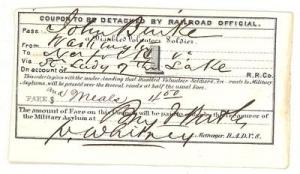 COUPON TO BE DETACHED BY RAILROAD OFFICIAL.
Pass John Burke
a Disabled Volunteer Soldier.
From Washington
To Norfolk Va
Via Str Lady of the Lake
On account of R. R. Co.
This order is given with the understanding that Disabled Volunteer Soldiers, en route to Military
Asylums, will be passed over the several roads at half the usual Fare.
FARE $ and Meals 4.00
The amount of Fare on this
of the Military Asylum at
Manager N.A.D.V.S.